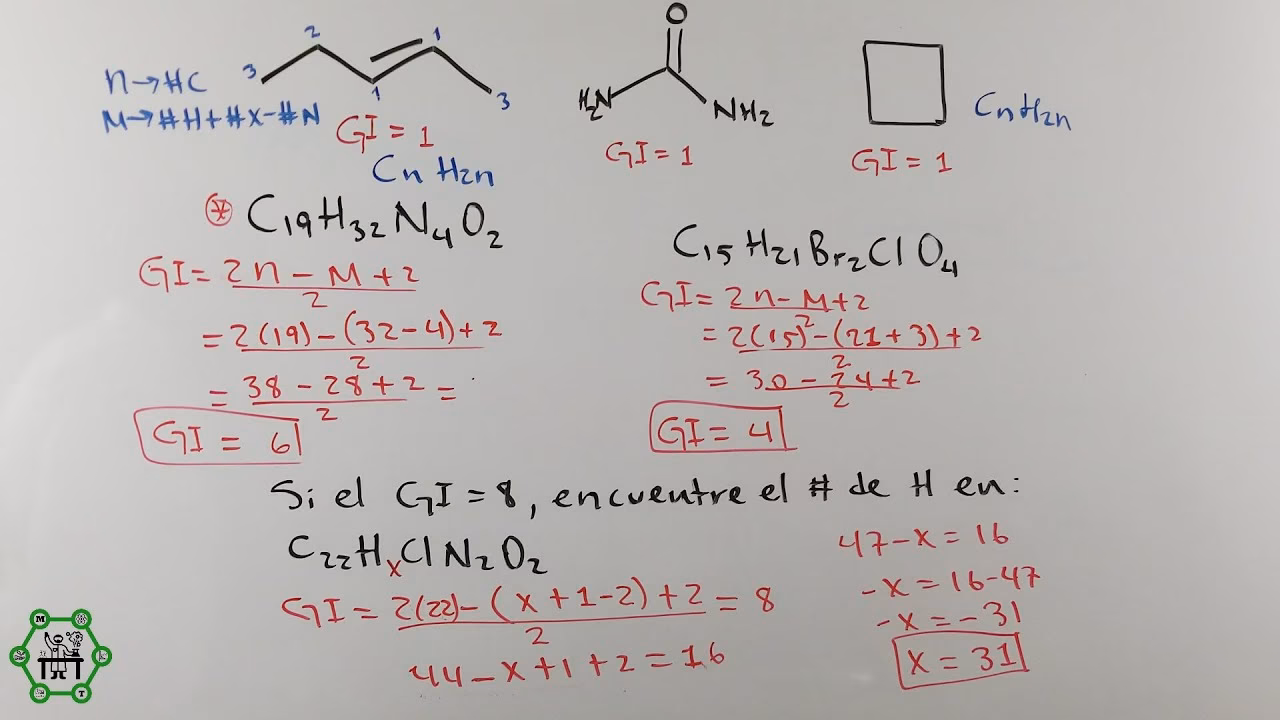 3 2 1 1 3
n→#C
M→#H+#X-#N
GI = 1
CnH2n
O
H2N NH2
GI = 1
CnH2n
GI = 1
* C19H32N4O2
GI = 2n - M + 2
2
= 2(19) - (32-4) + 2
2
= 38 - 28 + 2 =
2
GI = 6
C15H21Br2ClO4
GI = 2n - M + 2
2
= 2(15) - (21 + 3) + 2
2
= 30 - 24 + 2
2
GI = 4
Si el GI = 8, encuentre el # de H en:
C22HxClN2O2
GI = 2(22) - (x + 1 - 2) + 2 = 8
2
44 - x + 1 + 2 = 16
47 - x = 16
-x = 16 - 47
-x = -31
x = 31
M
T